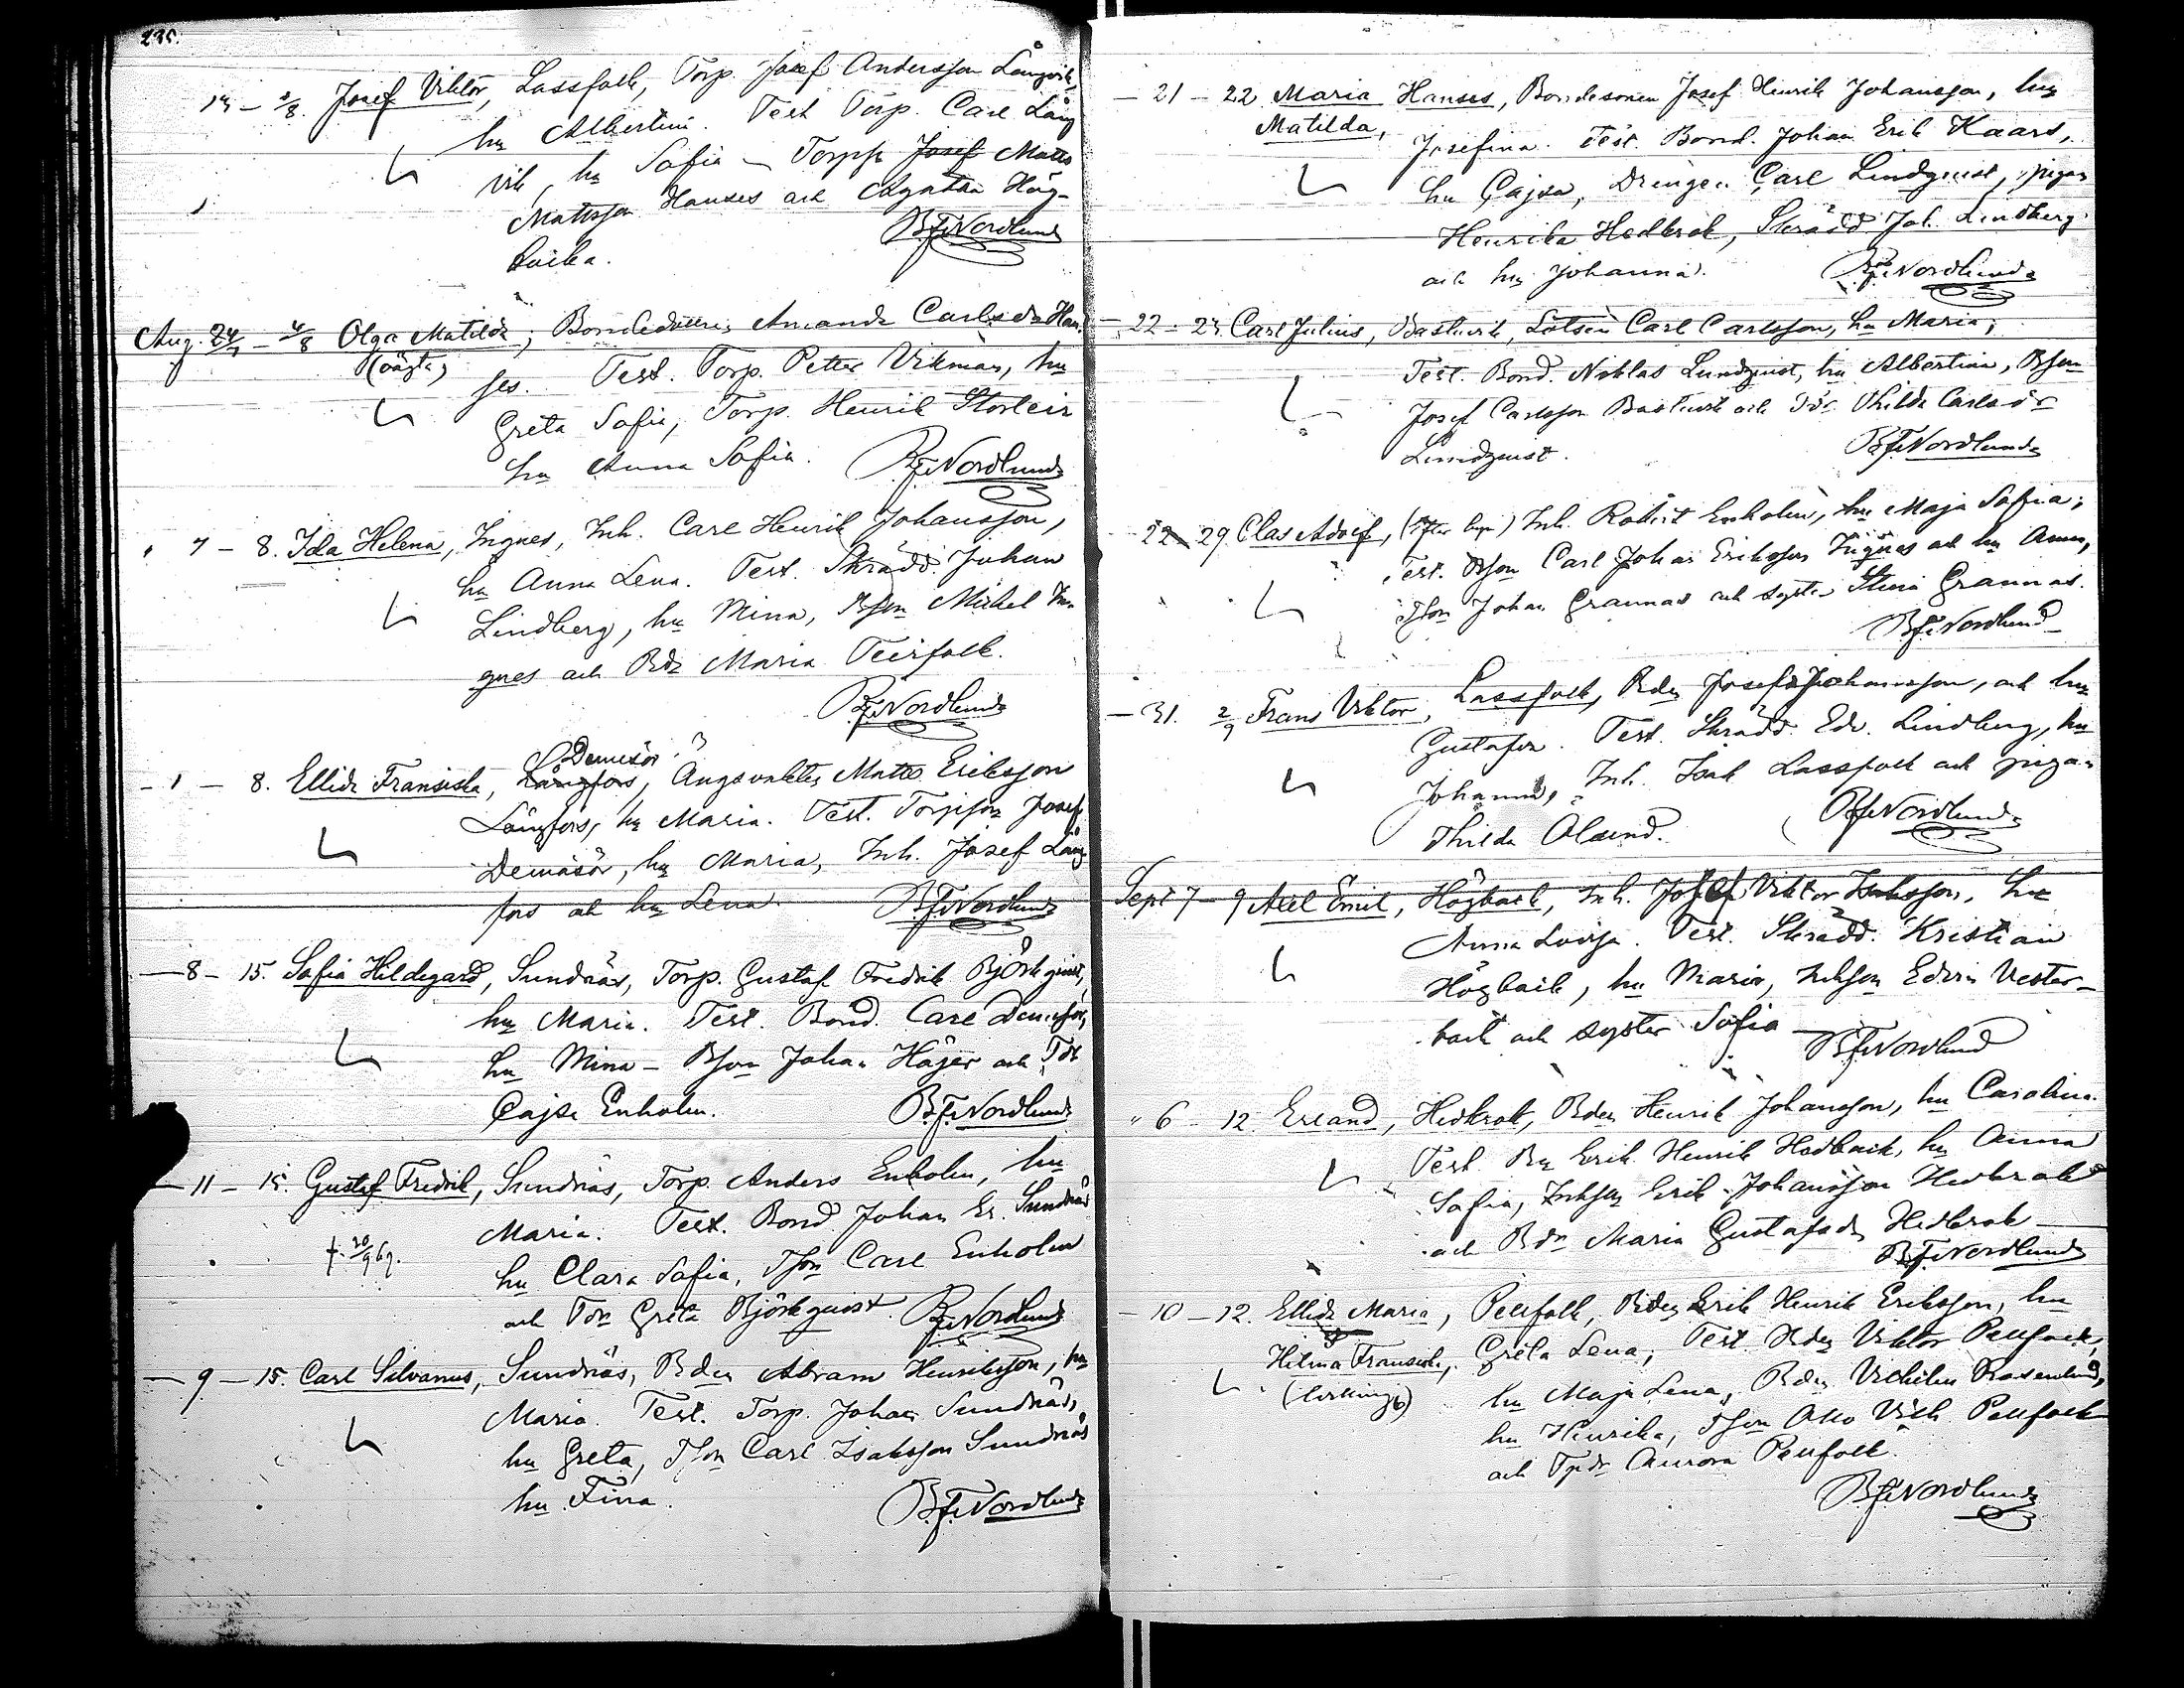 235.
13 - 1/8. Josef Viktor, Lassfolk, Torp. Josef Andersson Långvik,
hu Albertina. Test Torp. Carl Lång
vik, hu Sofia - Torpsn Josef Matts
Mattsson Hanses och Agata Hög-
backa. BFNordlund
Aug. 24/7 - 4/8 Olga Matilda, Bondedottern Amanda Carlsdr Han-
(oägta) ses. Test. Torp. Petter Vikman, hu
Greta Sofia, Torp. Henrik Storteir
hu Anna Sofia. BFNordlund
" 7 - 8. Ida Helena, Ingnes, Inh. Carl Henrik Johansson,
hu Anna Lena. Test. Skrädd. Johan
Lindberg, hu Mina, Bson Mickel In-
gnes och Bdr Maria Teirfolk.
BFNordlund
Demisör
- 1 - 8. Ellida Fransiska, Långfors, Ängsvaktr Matts Eriksson
Långfors, hu Maria. Test. Torpson Josef
Demisör, hu Maria, Inh. Josef Lång-
fors och hu Lena. BFNordlund
- 8 - 15. Sofia Hildegard, Sundnäs, Torp. Gustaf Fredrik Björkquist,
hu Maria. Test. Bond. Carl Demisör,
hu Mina - Bson Johan Häger och Tdr
Cajsa Enholm. BFNordlund
- 11 - 15. Gustaf Fredrik, Sundnäs, Torp. Anders Enholm, hu
Maria. Test. Bond. Johan Er. Sundnäs
†. 20/9 69.
hu Clara Sofia, Tson Carl Enholm
och Tdr Greta Björkquist BFNordlund
- 9 - 15. Carl Silvanus, Sundnäs, Bden Abram Henriksson, hu
Maria. Test. Torp. Johan Sundnäs,
hu Greta, Tson Carl Isaksson Sundnäs
hu Fina. BFNordlund
- 21 - 22 Maria Hanses, Bondesonen Josef Henrik Johansson, hu
Matilda, Josefina. Test. Bond. Johan Erik Kaars,
hu Cajsa, Drängen Carl Lindquist, pigan
Henrika Hedkrok, Skrädd Joh. Lindberg
och hu Johanna. BFNordlund
- 22 - 23. Carl Julius, Basturk, Lotsen Carl Carlsson, hu Maria;
Test. Bond. Niklas Lundquist, hu Albertina, Bson
Josef Carlsson Basturk och Tdr Thilda Carlsdr
Lundquist. BFNordlund
- 22 - 29. Clas Adolf, Inh. Robert Enholm, hu Maja Sofia;
Test. Bson Carl Johan Eriksson Ingnes och hu Anna,
Tson Johan Grannas och syster Stina Grannas.
BFNordlund
- 31. 2/9 Frans Viktor, Lassfolk, Bden Josef Johansson, och hu
Gustafva. Test. Skrädd. Edv. Lindberg, hu
Johanna, Inh. Isak Lassfolk och pigan
Thilda Ölund. BFNordlund
Sept 7 - 9 Axel Emil, Högback, Inh. Josef Viktor Isaksson, hu
Anna Lovisa. Test. Skrädd. Kristian
Högback, hu Maria, Inhson Edvin Vester-
back och syster Sofia
BFNordlund
" 6 - 12. Erland, Hedkrok, Bden Henrik Johansson, hu Carolina.
Test. Bn Erik Henrik Hedback, hu Anna
Sofia, Inhson Erik Johansson Hedkrok
och Bdr Maria Gustafsdr Hedkrok
BFNordlund
- 10 - 12. Ellida Maria, Pellfolk, Bden Erik Henrik Eriksson, hu
& Hilma Fransiska, Greta Lena, Test. Bden Viktor Pellfolk,
(tvillingb) hu Maja Lena, Bden Vilhelm Rosenlund,
hu Henrika, Tson Otto Vilh. Pellfolk
och Tpdr Aurora Pellfolk.
BFNordlund